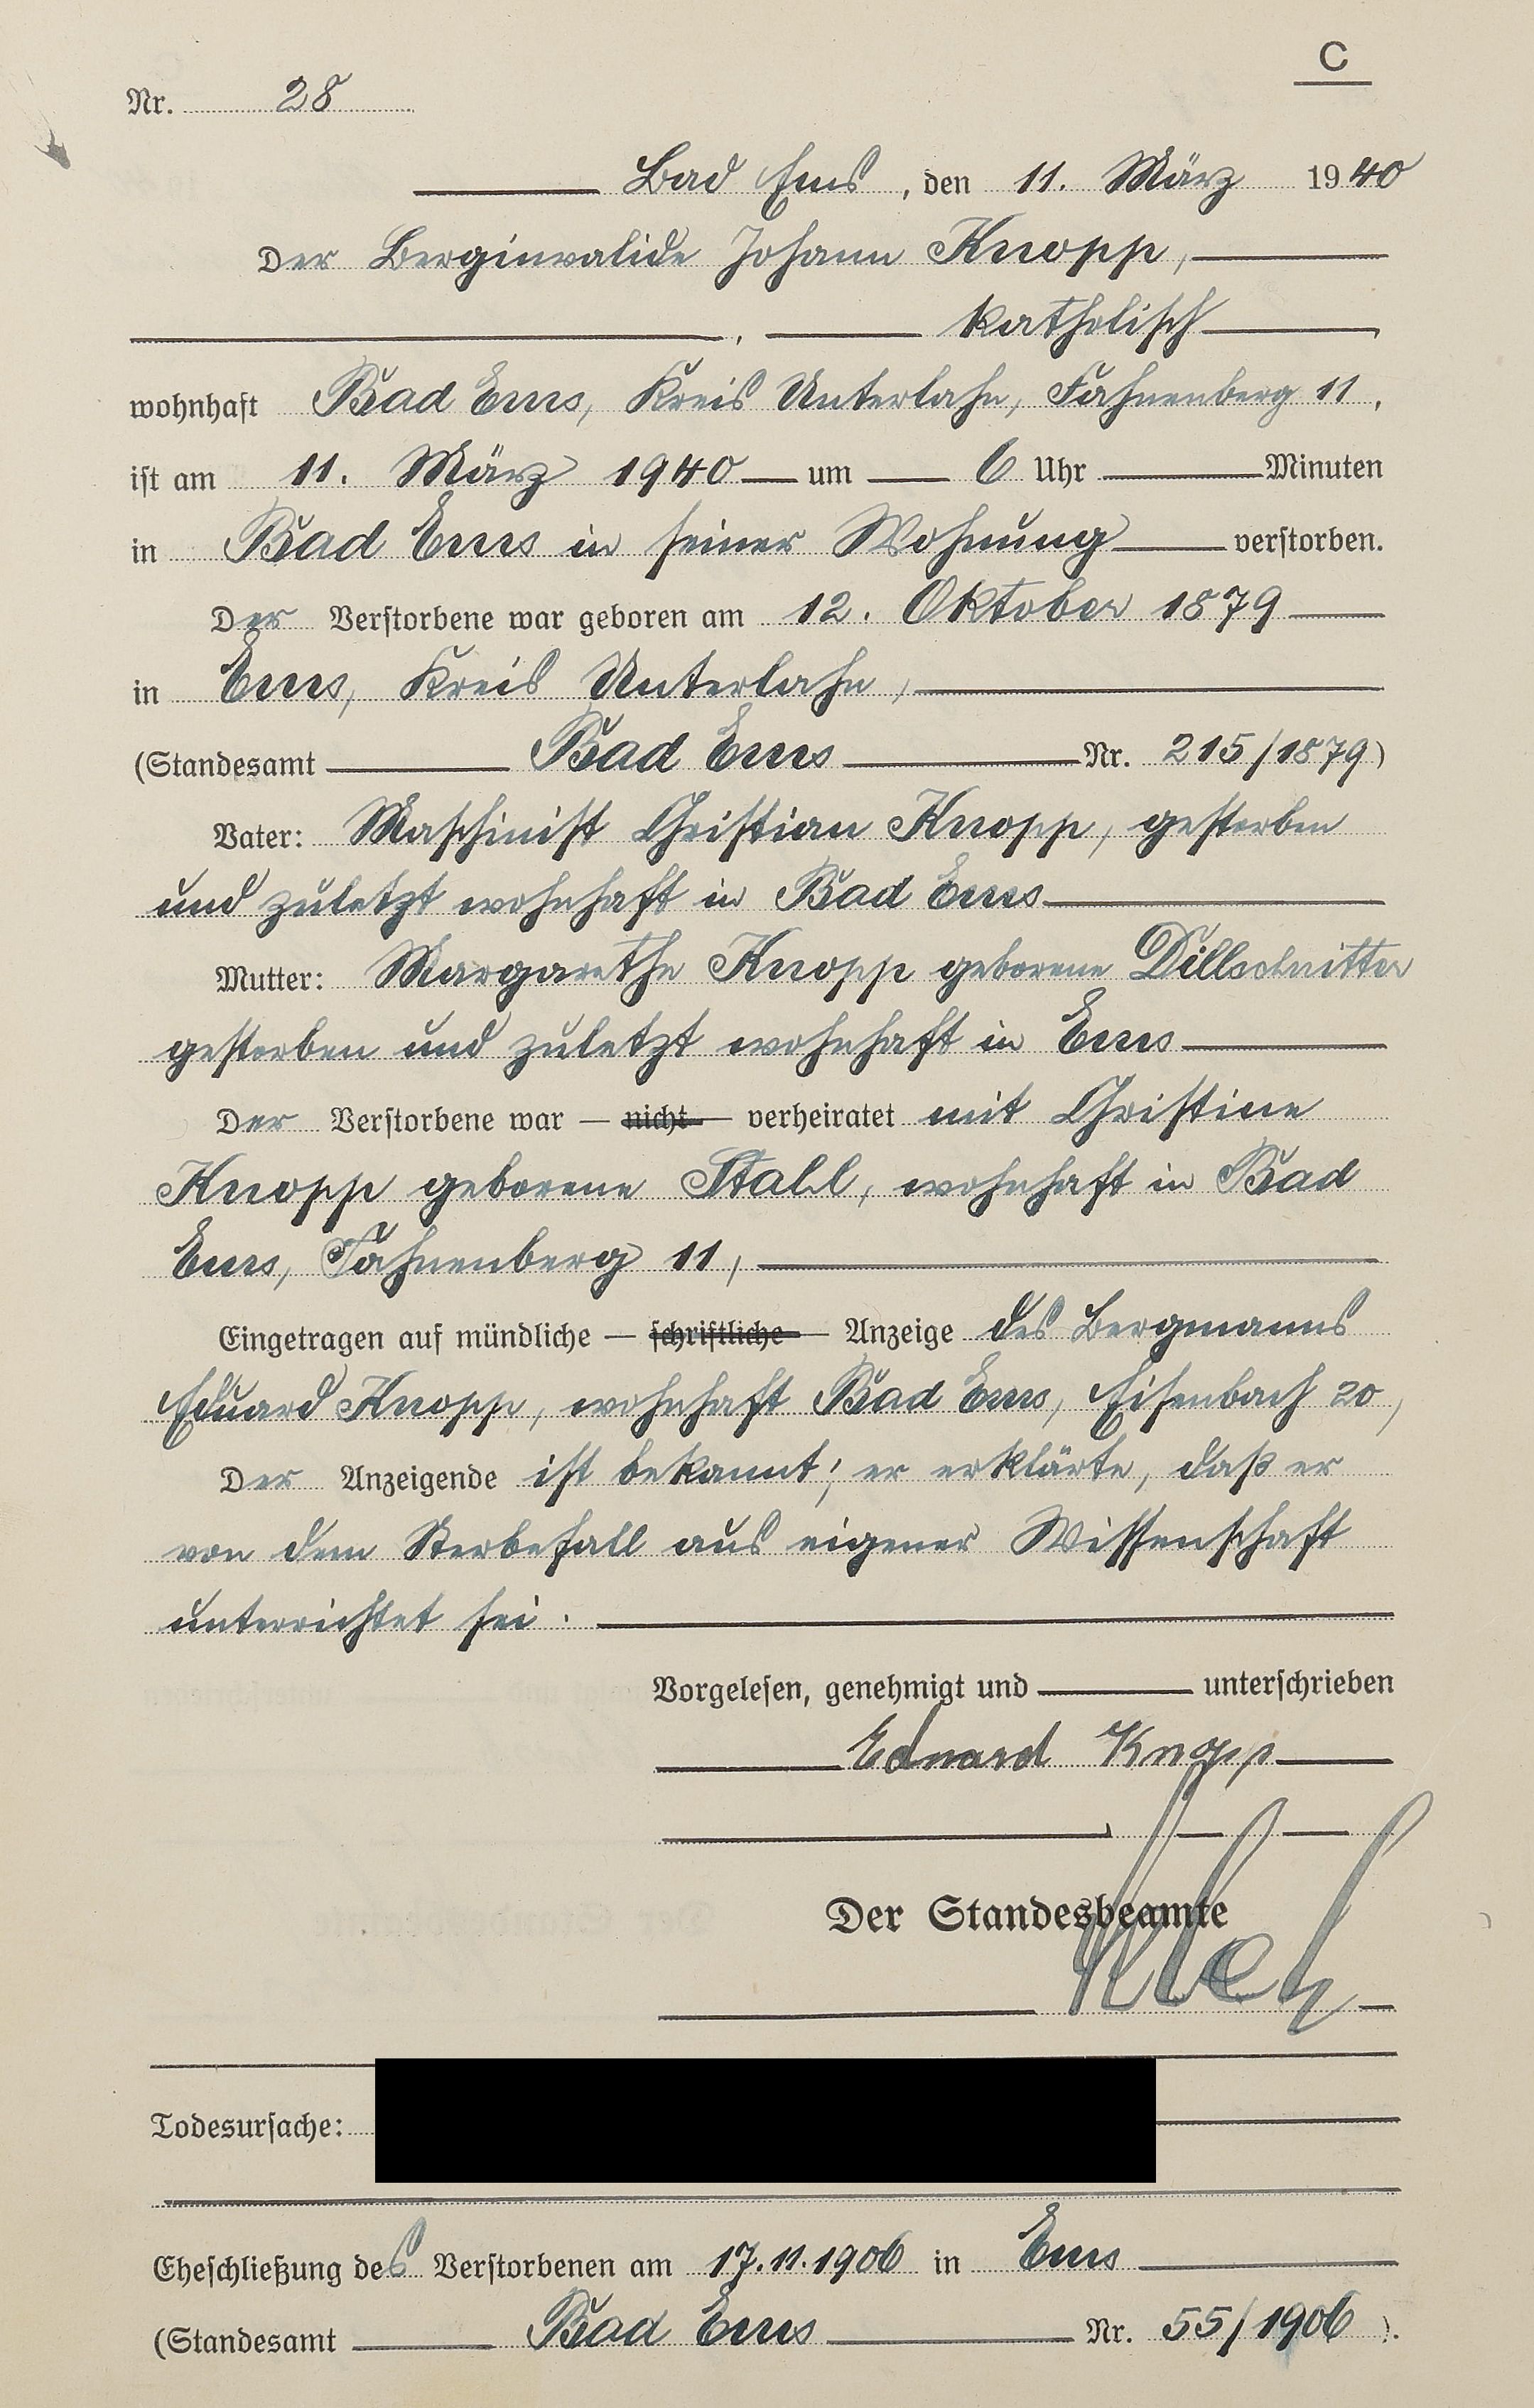 C
Nr. 28
Bad Ems, den 11. März 1940
Der Berginvalide Johann Knopp,
, katholisch,
wohnhaft Bad Ems, Kreis Unterlahn, Fahnenberg 11,
ist am 11. März 1940 um 6 Uhr Minuten
in Bad Ems in seiner Wohnung verstorben.
Der Verstorbene war geboren am 12. Oktober 1879
in Ems, Kreis Unterlahn,
(Standesamt Bad Ems Nr. 215/1879)
Vater: Maschinist Christian Knopp, gestorben
und zuletzt wohnhaft in Bad Ems
Mutter: Margarethe Knopp geborene Dillschnitter
gestorben und zuletzt wohnhaft in Ems
Der Verstorbene war — nicht — verheiratet mit Christine
Knopp geborene Stahl, wohnhaft in Bad
Ems, Fahnenberg 11,
Eingetragen auf mündliche — schriftliche — Anzeige des Bergmanns
Eduard Knopp, wohnhaft Bad Ems, Eisenbach 20,
Der Anzeigende ist bekannt; er erklärte, daß er
von dem Sterbefall aus eigener Wissenschaft
unterrichtet sei.
Vorgelesen, genehmigt und unterschrieben
Eduard Knopp
Der Standesbeamte
Todesursache:
Eheschließung des Verstorbenen am 17.11.1906 in Ems
(Standesamt Bad Ems Nr. 55/1906).